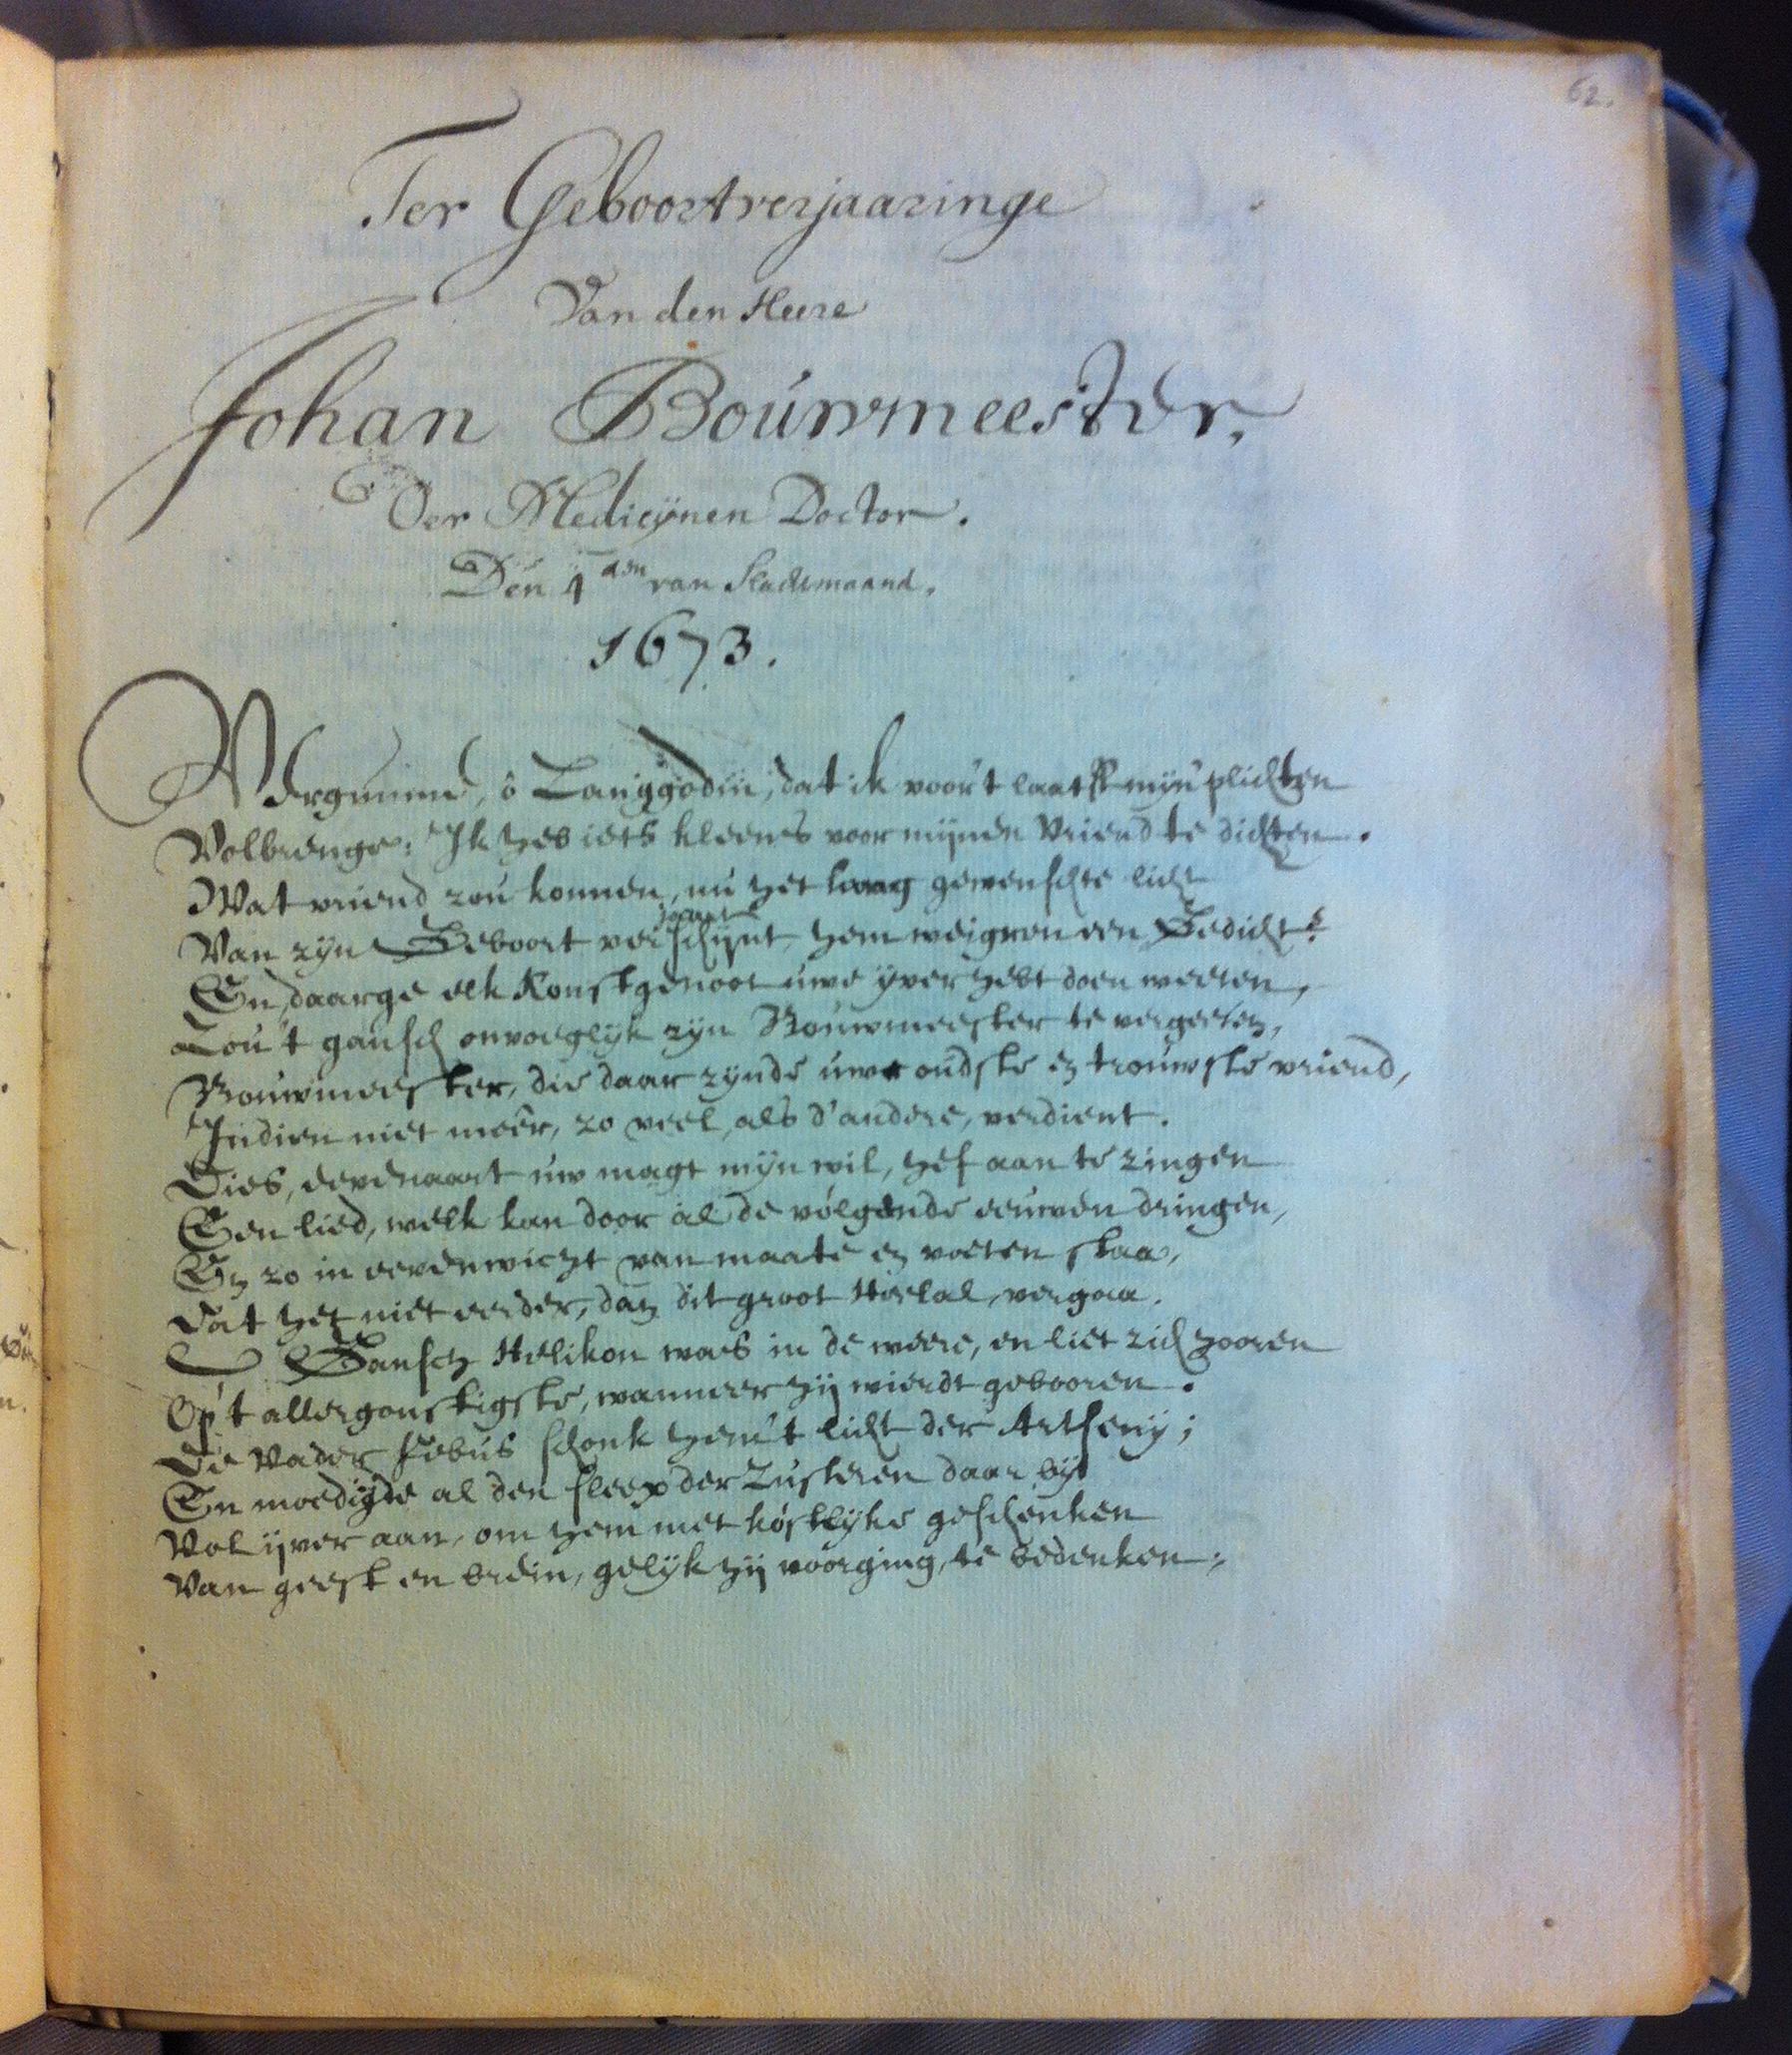 62.
Ter Geboortverjaaringe
Van den Heere
Johan Bouwmeester,
Der Medicynen Doctor.
Den 4den van Slachtmaand.
1673.
Vergunne, ô Zanggodin, dat ik voor 't laatst mijn plichten
Volbrenge: Ik heb iets kleens voor mijnen Vriend te dichten.
Wat vriend zou konnen, nu het lang gewenschte licht
Van zijn Geboort verschijnt, hem weigren een Gedicht?
En, daar ge elk Konstgenoot uwe ijver hebt doen weeten,
Zou 't gansch onvoeglijk zijn Bouwmeester te vergeeten,
Bouwmeester, die daar zynde uw oudste en trouwste vriend,
Indien niet meêr, zo veel, als d'andere, verdient.
Dies, evenaart uw magt mijn wil, hef aan te zingen
Een lied, welk kan door al de volgende eeuwen dringen,
En zo in evenwicht van maate en voeten staa,
Dat het niet eerder, dan dit groot Heelal, vergaa.
Gansch Helikon was in de weere, en liet zich hooren
Op 't allergonstigste, wanneer hij wierdt gebooren.
De Vader Febus schonk hem 't licht der Artsenij;
En moedigde al den sleep der Zusteren daar bij
Vol ijver aan, om hem met kostlijke geschenken
Van geest en brein, gelijk hij voorging, te bedenken;